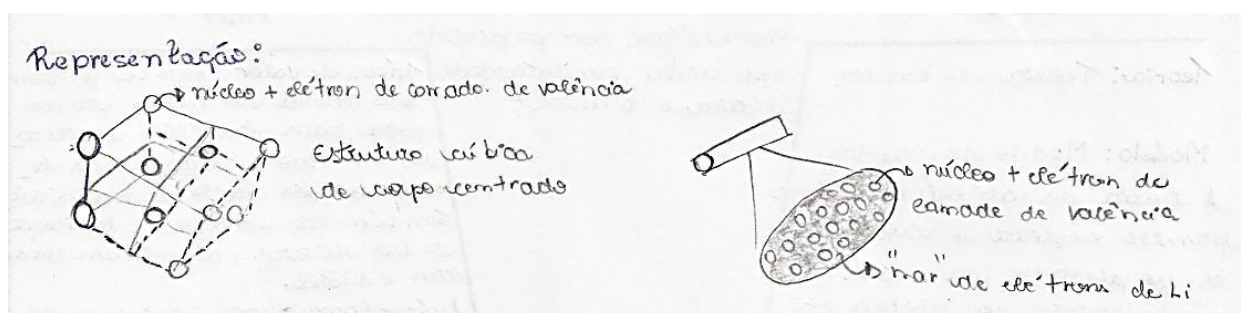 Representação:
núcleo + elétron de comada. de valência
Estrutura cúbica
de corpo centrado
núcleo + elétron de
camada de valência
"mar" de elétrons de Li